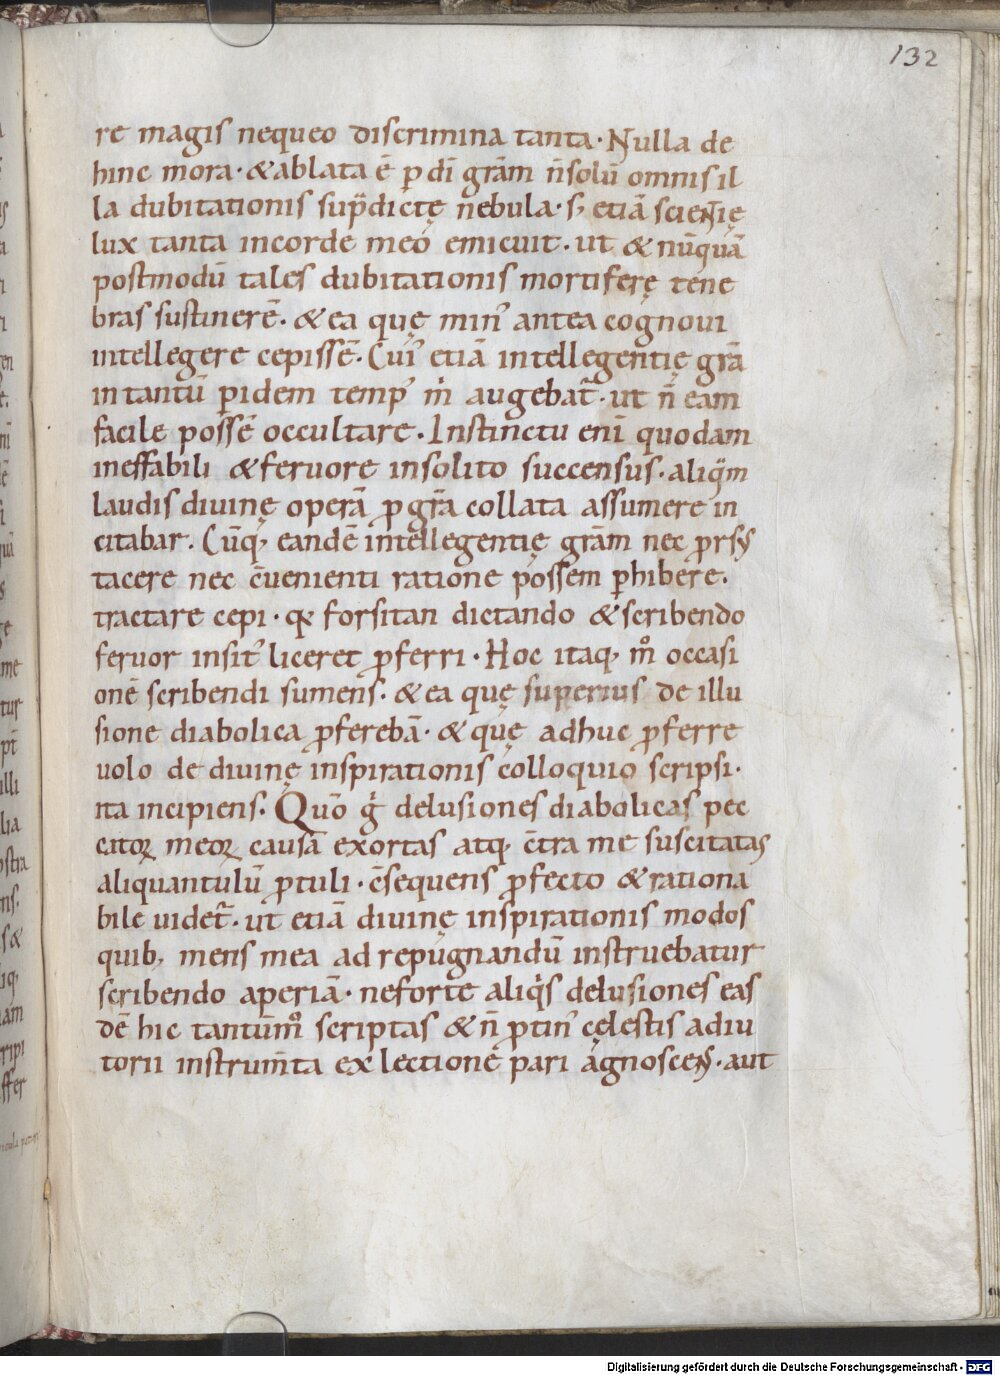 132
re magis nequeo discrimina tanta· Nulla de
hinc mora· &ablata ē ꝑ dī grām n̄solū omnis il
la dubitationis sup̄dictę nebula· s; etiā scientię
lux tanta incorde meo emicuit· ut & nūquā
postmodū tales dubitationis mortiferę tene
bras sustinerē· & ea quę min᾽ antea cognoui
intellegere cepissē· Cui᾽ etiā intellegentię grā
intantū ꝑidem temp᾽ m̍ augebat᷑· ut n̄ eam
facile possē occultare· Instinctu eni̅ quodam
ineffabili &feruore insolito succensus· aliq̄m
laudis diuinę operā ꝓ grā collata assumere in
citabar· Cūq; eandē intellegentię grām nec prsꝰ
tacere nec c̄uenienti ratione possem ꝓhibere·
tractare cepi· qͣ forsitan dictando &scribendo
feruor insit᾽ liceret ꝓferri· Hoc itaq; mͦ occasi
onē scribendi sumens· & ea quę superius de illu
sione diabolica ꝓferebā· & quę adhuc ꝓferre
uolo de diuinę inspirationis colloquio scripsi·
ita incipiens· Quō g̍ delusiones diabolicas pec
catoꝝ meoꝝ causā exortas atq; c̄tra me suscitatas
aliquantulū ꝓtuli· c̄sequens ꝓfecto &rationa
bile uidet᷑· ut etiā diuinę inspirationis modos
quib; mens mea ad repugnandū instruebatur
scribendo aperiā· neforte aliq̍s delusiones eas
dē hic tantūmͦ scriptas & n̄ ꝓtin᾽ cęlestis adiu
torii instrum̄ta ex lectione pari agnoscens· aut
Digitalisierung gefördert durch die Deutsche Forschungsgemeinschaft - DFG